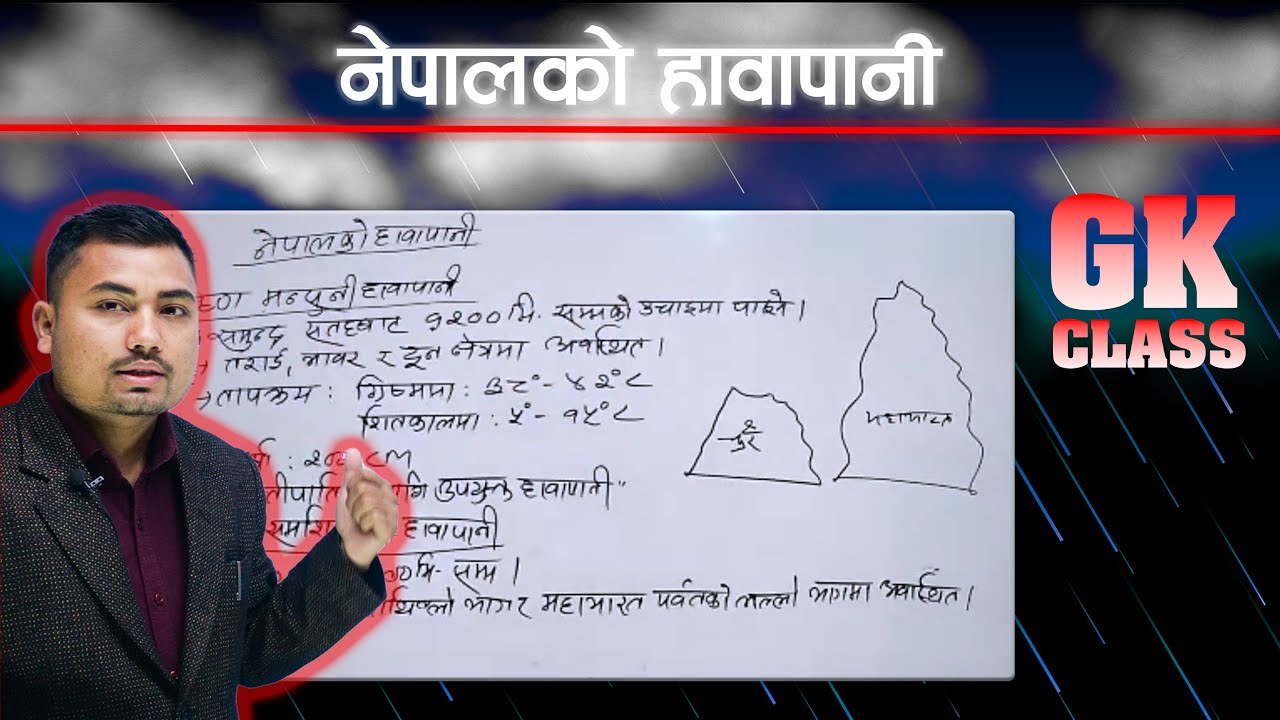 नेपालको हावापानी
GK
CLASS
नेपालको हावापानी
मनसुनी हावापानी
समुन्द्र सतहबाट १२०० मि. सम्मको उचाइमा पाइने।
→ तराई, भावर र दून क्षेत्रमा अवस्थित।
→ तापक्रम : ग्रिष्ममा : ३८° - ४२°C
शितकालमा : ५° - १५°C
: २०० CM
उपयुक्त हावापानी"
हावापानी
मि- सम्म।
माथिल्लो भाग र महाभारत पर्वतको तल्लो भागमा अवस्थित।
चुरे
महाभारत